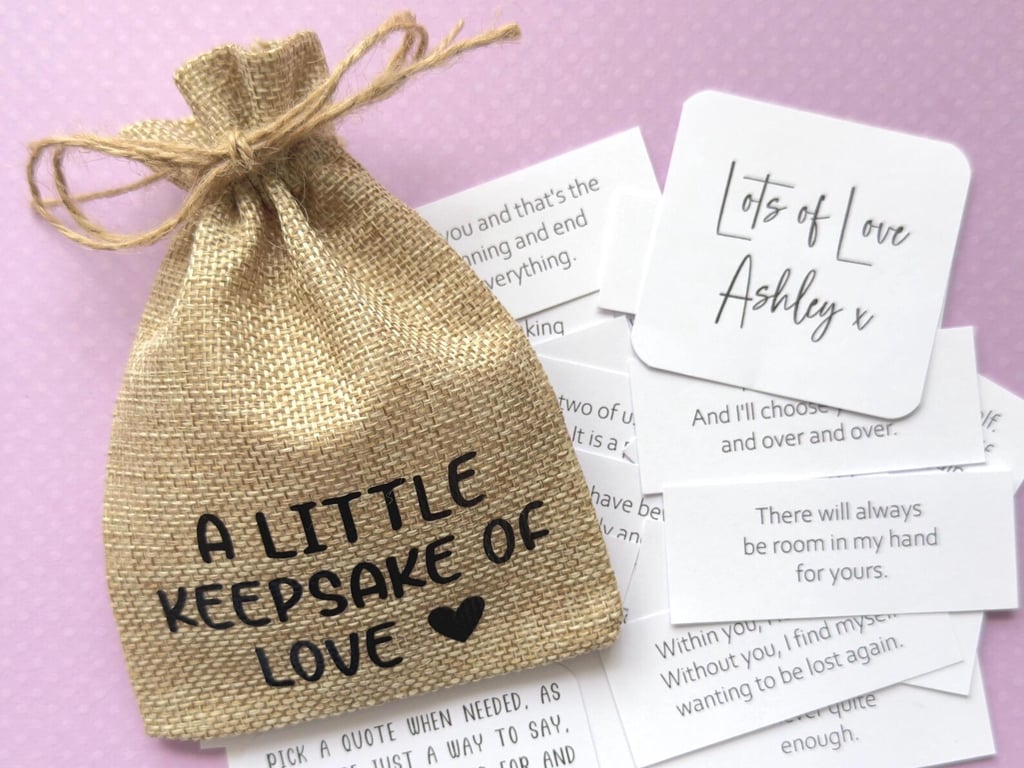 A LITTLE
KEEPSAKE OF
LOVE
Lots of Love
Ashley x
you and that's the
and end
And I'll choose
and over and over.
two of
It is a
have
There will always
be room in my hand
for yours.
Within you, I
Without you, I find myself
wanting to be lost again.
quite
enough.
PICK A QUOTE WHEN NEEDED, AS
JUST A WAY TO SAY,
FAR AND